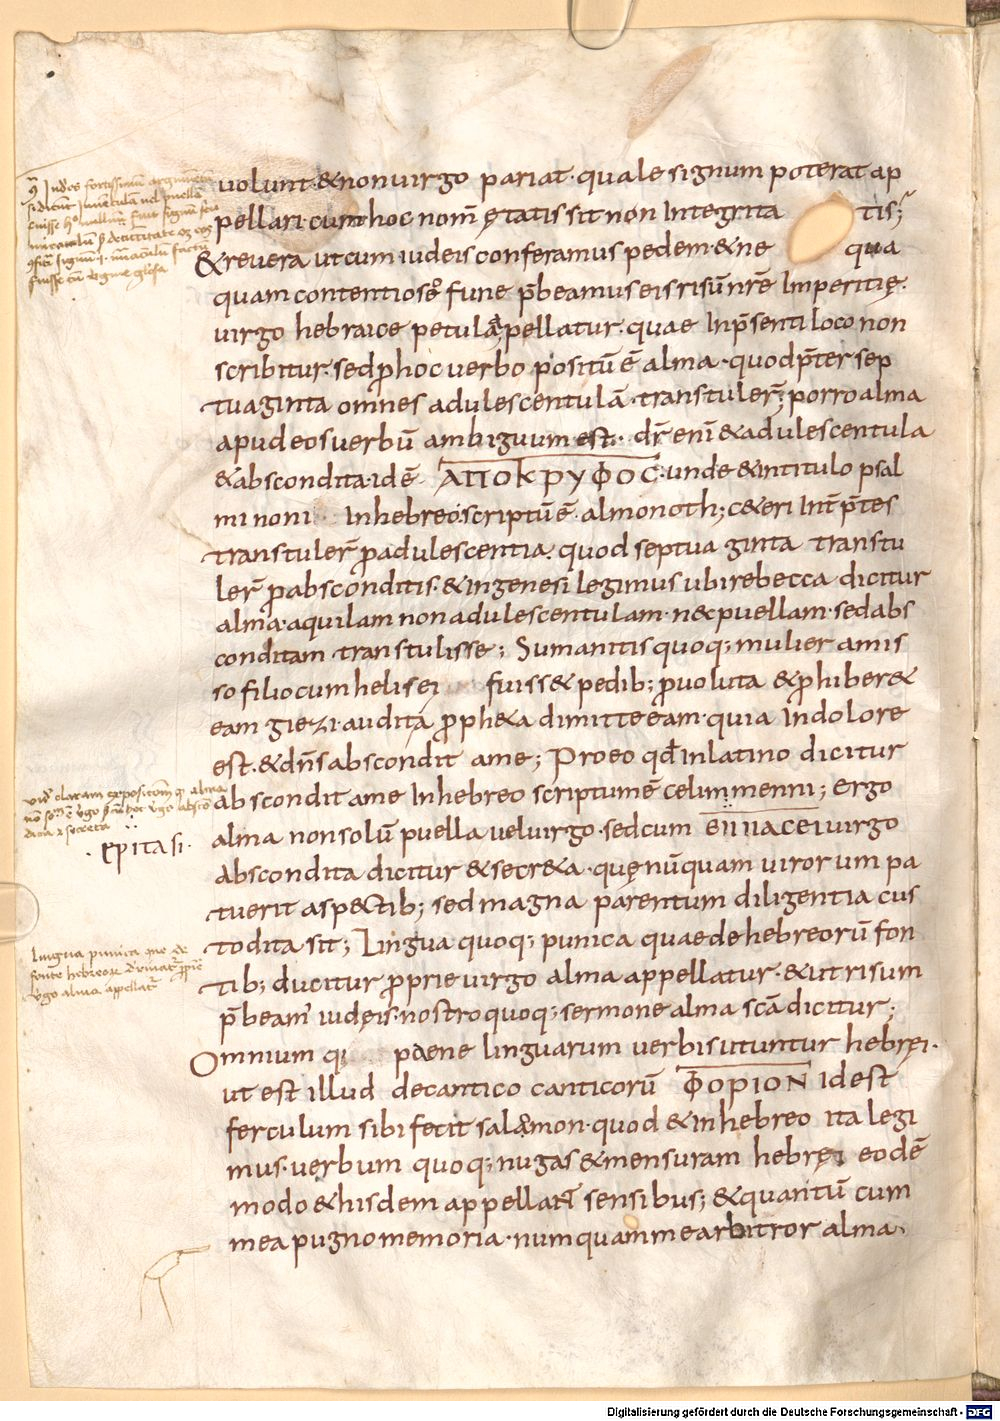 uolunt & non uirgo pariat · quale signum poterat ap
pellari · cum hoc nom̅ ętatis sit non Integrita tis;
& reuera ut cum iudeis conferamus pedem · & ne qua
quam contentioso fune p̅beamus eis risu̅ nr̅e Imperitię ·
uirgo hebraice petula appellatur · quae Inp̅senti loco non
scribitur · sed p hoc uerbo positu̅ e̅ alma · quod p̅ter sep
tuaginta omnes adulescentula̅ · transtuler̅; porro alma
apud eos uerbu̅ ambiguum est · dr̅ eni̅ & adulescentula
& abscondita · ide̅ ΑΠΟΚΡΥΦΟC · unde & intitulo psal
mi noni Inhebreo · scriptu̅ e̅ · almonoth; c&eri Int̅p̅tes
transtuler̅ p adulescentia · quod septua ginta transtu
ler̅ p absconditis · & ingenesi legimus ubi rebecca dicitur
alma · aquilam non adulescentulam · nec puellam · sed abs
conditam transtulisse; Sumanitis quoq; mulier amis
so filio cum helisei fuiss& pedib; puoluta & phiber&
eam giezi · audita proph&a dimitte eam · quia Indolore
est · & dn̅s abscondit ame; Pro eo qd̅ Inlatino dicitur
abscondit ame Inhebreo scriptum e̅ celim menni; ergo
alma non solu̅ puella uel uirgo · sed cum επιτασει uirgo
abscondita dicitur & secr&a · quę nu̅quam uirorum pa
tuerit aspectib; sed magna parentum diligentia cus
todita sit; Lingua quoq; punica quae de hebreoru̅ fon
tib; ducitur proprie uirgo alma appellatur · & ut risum
p̅beam' iudęis · nostro quoq; sermone alma sca̅ dicitur;
Omnium q; paene linguarum uerbis utuntur hebręi ·
ut est illud decantico canticoru̅ ΦΟΡΙΟΝ Idest
ferculum sibi fecit salomon · quod & inhebreo ita legi
mus · uerbum quoq; nugas & mensuram hebręi eode̅
modo & hisdem appellant sensibus; & quantu̅ cum
mea pugno memoria · numquam me arbitror alma ·
· εpitasi ·
lingua punica que de
fonte hebreor̅
v̅go alma appellat̅
Digitalisierung gefördert durch die Deutsche Forschungsgemeinschaft - DFG